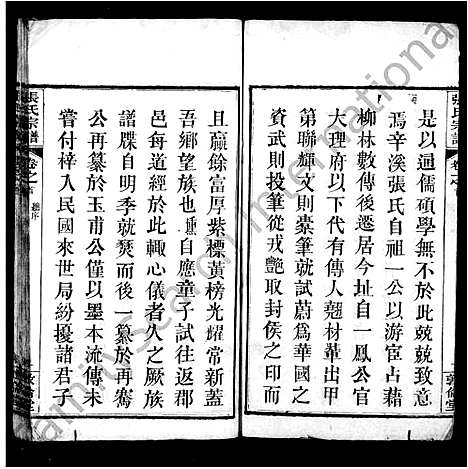 張氏宗譜
是以通儒碩學無不於此兢兢致意
焉辛溪張氏自祖一公以游宦占藉
柳林數傳後遷居今址自一鳳公官
大理府以下代有傳人翹材輩出甲
第聯輝文則橐筆就試蔚為華國之
資武則投筆從戎艷取封侯之印而
且贏餘富厚紫標黃榜光耀常新蓋
吾鄉望族也 自應童子試往返郡
邑每道經於此輒心儀者久之厥族
譜牒自明季就燹而後一纂於再騫
公再纂於玉甫公僅以墨本流傳未
嘗付梓入民國來世局紛擾諸君子
張氏宗譜
卷之首
敦倫堂
Family Search International